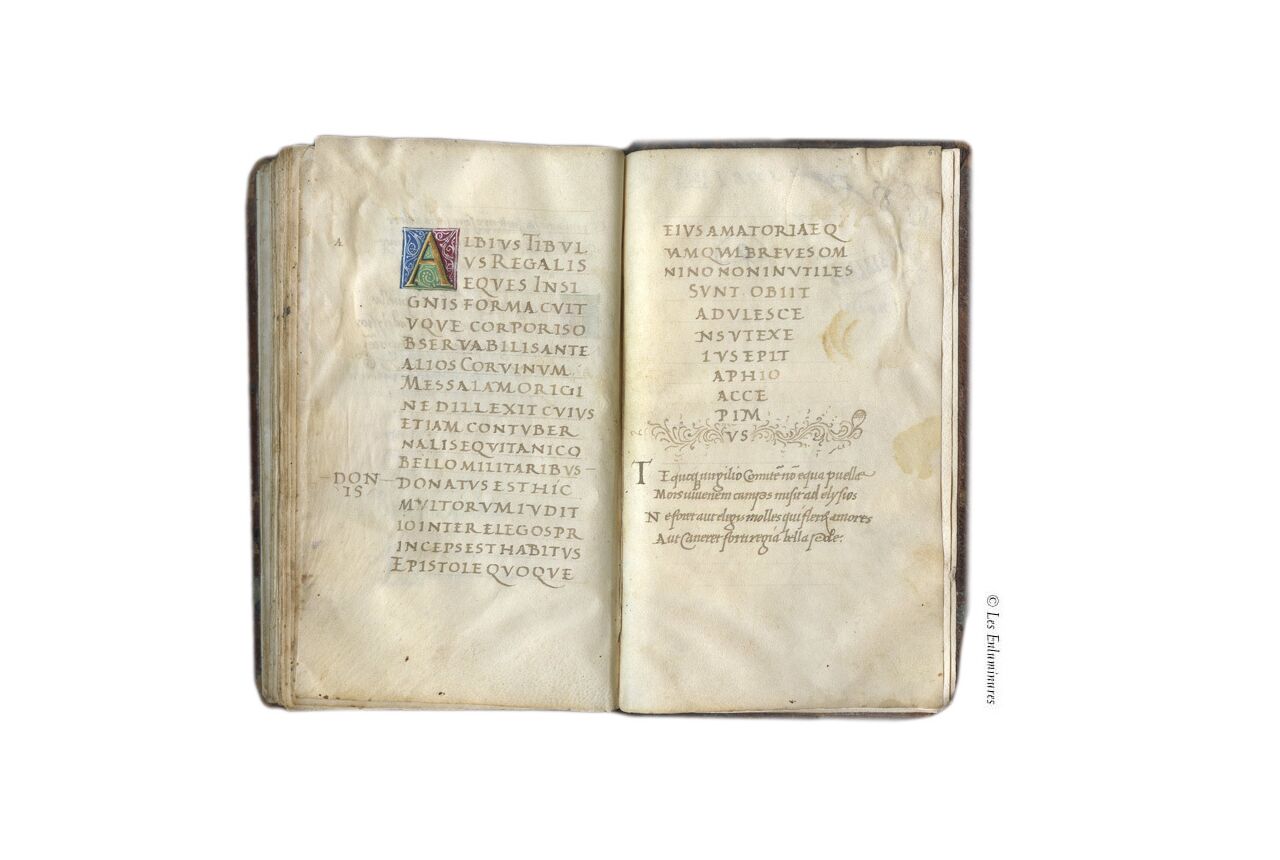 A
ALBIVS TIBVL
VS REGALIS
EQVES INSI
GNIS FORMA CVLT
VQVE CORPORIS O
BSERVABILIS ANTE
ALIOS CORVINVM
MESSALAM ORIGI
NE DILLEXIT CVIVS
ETIAM CONTVBER
NALIS EQVITANICO
BELLO MILITARIBVS
DON
IS
DONATVS EST HIC
MVLTORVM IVDIT
IO INTER ELEGOS PR
INCEPS EST HABITVS
EPISTOLE QVOQVE
EIVS AMATORIAE Q
VAMQVVL BREVES OM
NINO NON INVTILES
SVNT OBIIT
ADVLESCE
NS VT EXE
IVS EPIT
APHIO
ACCE
PIM
VS
Te quoq; uirgilio Comitē nō equa puelle
Mors iuuenem campos misit ad elysios
Ne foret aut elegis molles qui fleret amores
Aut Caneret forti regia bella pede:
© Les Enluminures